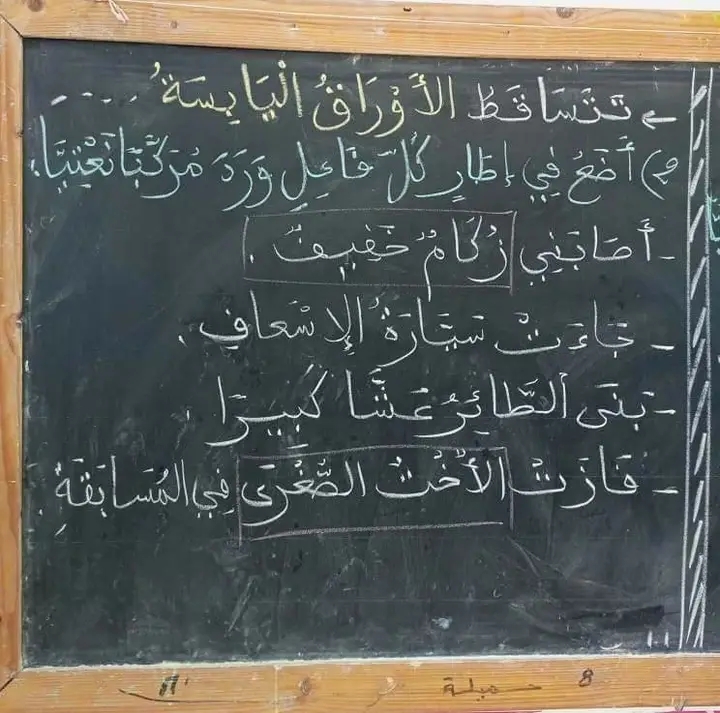 ← تَتَسَاقَطُ الأَوْرَاقُ الْيَابِسَةُ .....
2) أَضَعُ فِي إِطَارٍ كُلَّ فَاعِلٍ وَرَدَ مُرَكَّبًا نَعْتِيًّا.
- أَصَابَنِي زُكَامٌ خَفِيفٌ .
- جَاءَتْ سَيَّارَةُ الإِسْعَافِ .
- بَنَى الطَّائِرُ عُشًّا كَبِيرًا .
- فَازَتْ الأُخْتُ الصُّغْرَى فِي المُسَابَقَةِ .
8 جميلة